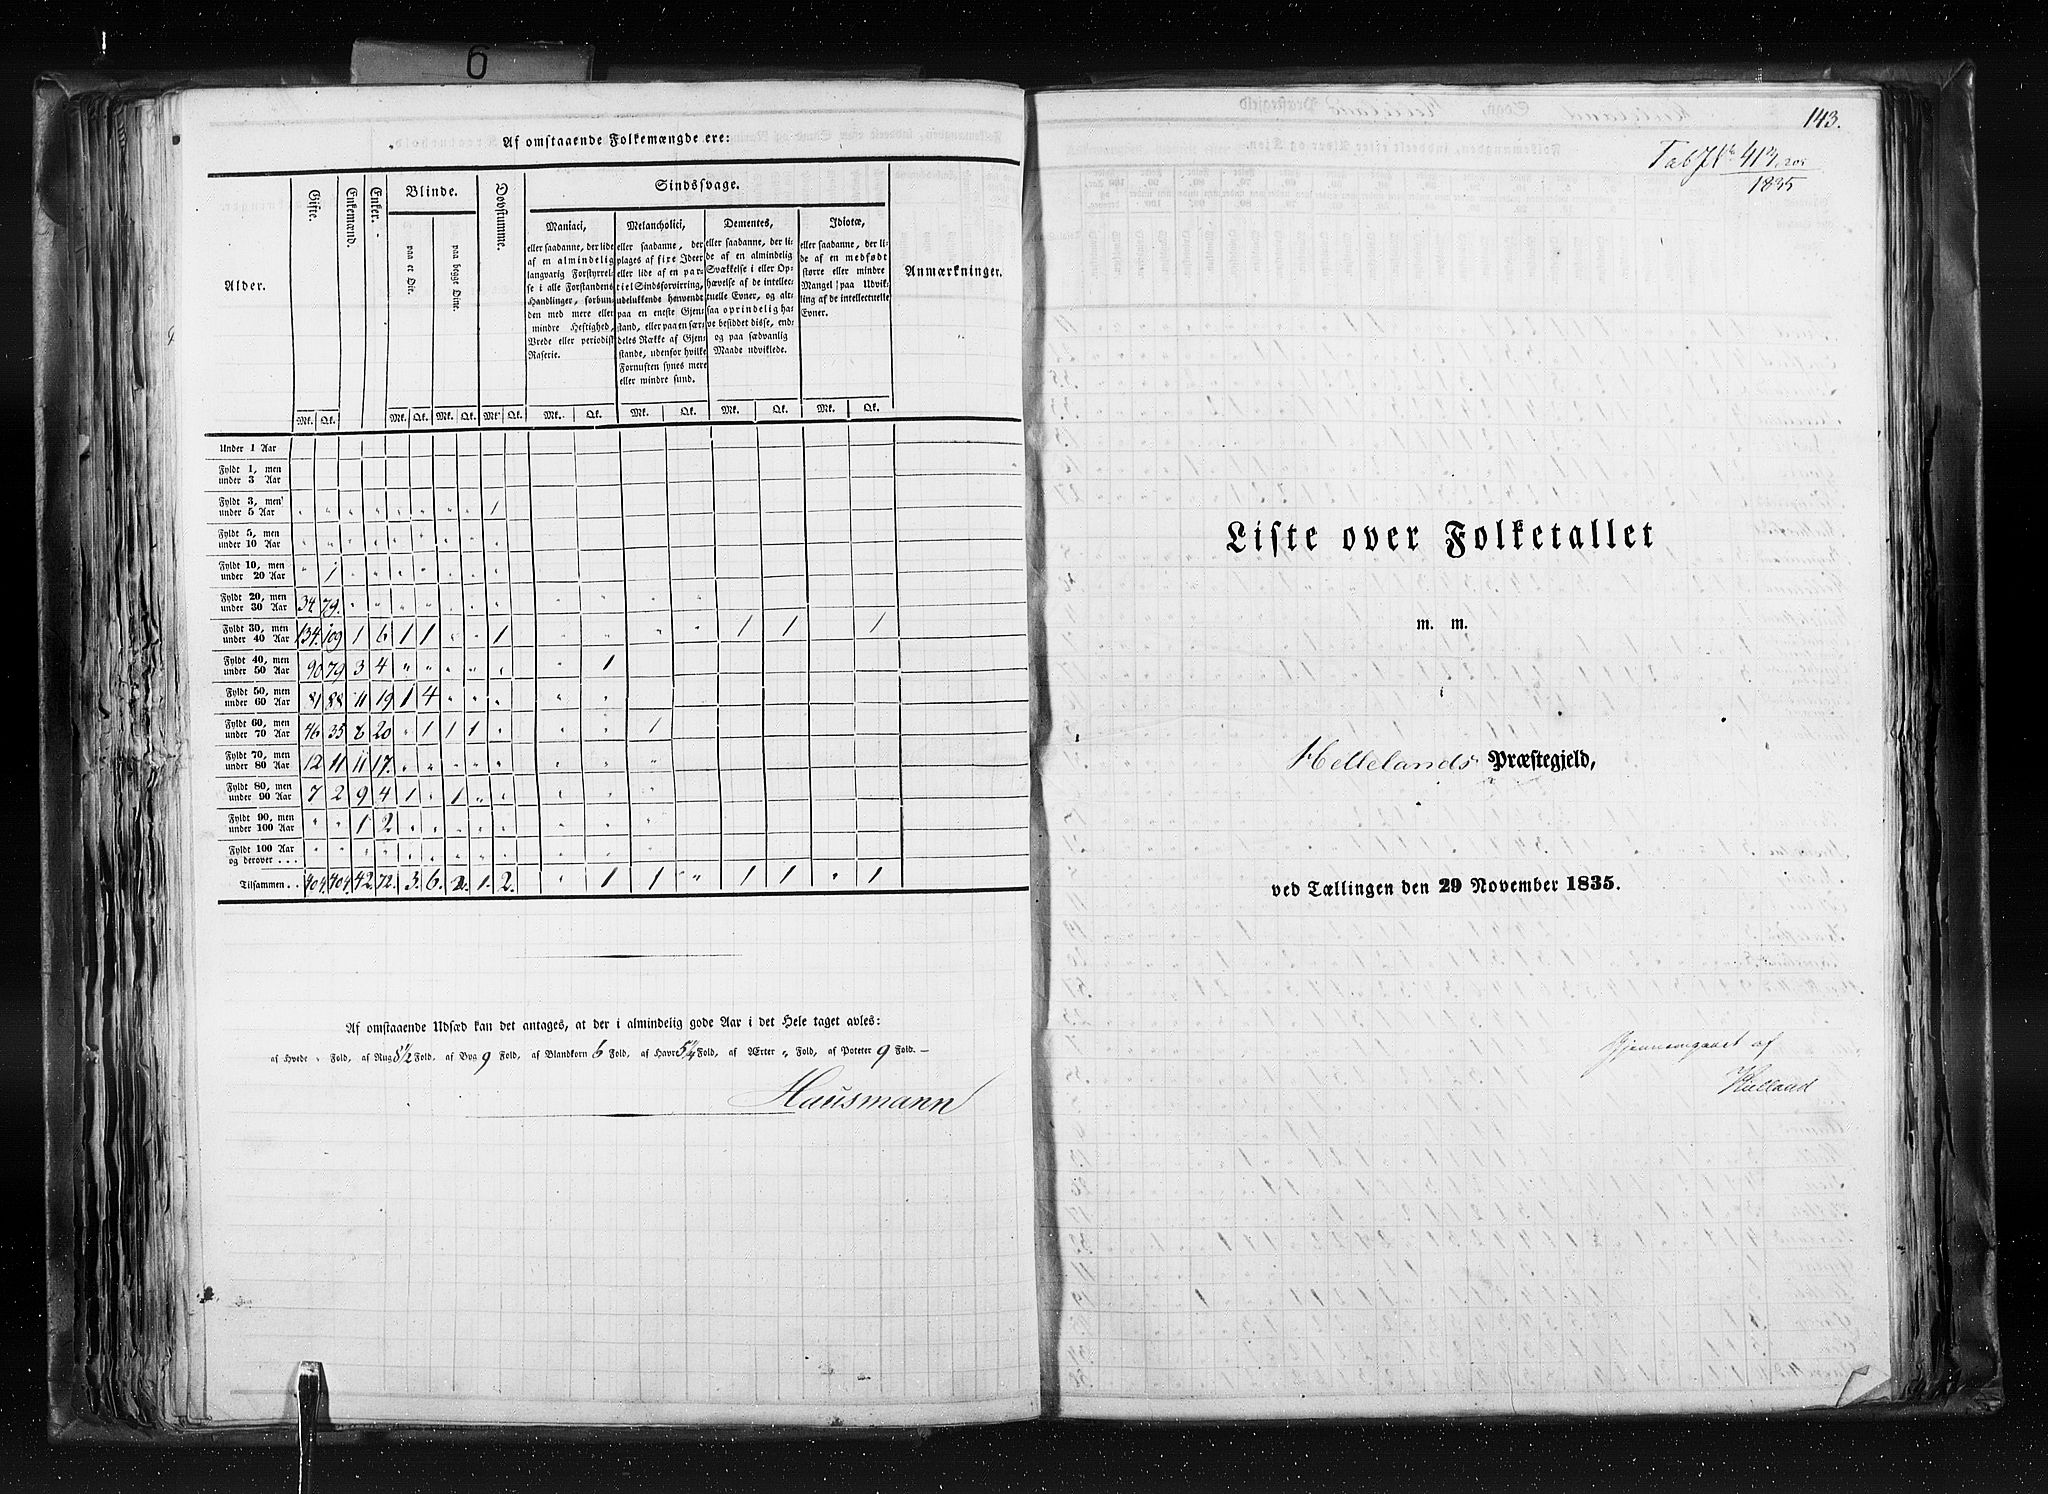 6
Af omstaaende Folkemængde ere:
Alder.
Gifte.
Enkemænd.
Enker.
Blinde.
paa et Øie.
paa begge Øine.
Døvstumme.
Sindssvage.
Maniaci,
eller saadanne, der lide
af en almindelig
langvarig Forstyrrel-
se i alle Forstandens
Handlinger, forbun-
den med mere eller
mindre Heftighed,
Vrede eller periodisk
Raserie.
Melancholici,
eller saadanne, der
plages af fixe Ideer
eller lide af en par-
tiel Sindsforvirring,
udelukkende henvendt
paa en eneste Gjen-
stand, eller paa en sær-
deles Række af Gjen-
stande, udenfor hvilke
Fornuften synes mere
eller mindre sund.
Dementes,
eller saadanne, der li-
de af en almindelig
Svækkelse i eller Op-
hævelse af de intellec-
tuelle Evner, og alt-
saa oprindelig ha-
ve besiddet disse, end-
og paa sædvanlig
Maade udviklede.
Idiotæ,
eller saadanne, der li-
de af en medfødt
større eller mindre
Mangel paa Udvik-
ling af de intellectuelle
Evner.
Anmærkninger.
Mk. Qk. Mk. Qk. Mk. Qk. Mk. Qk. Mk. Qk. Mk. Qk. Mk. Qk. Mk. Qk.
Under 1 Aar
Fyldt 1, men
under 3 Aar
Fyldt 3, men
under 5 Aar " " " " " " " " 1
Fyldt 5, men
under 10 Aar " " " " " " " " "
Fyldt 10, men
under 20 Aar " 1 " " " " " " "
Fyldt 20, men
under 30 Aar 34. 79. " " " " " " " " " " "
Fyldt 30, men
under 40 Aar 134. 109 1 6 1 1 " " 1 " " " " 1 1 1
Fyldt 40, men
under 50 Aar 90 79 3 4 " " " " " " 1
Fyldt 50, men
under 60 Aar 81 88 11 19 1 4 " " " " "
Fyldt 60, men
under 70 Aar 46 35 6 20 " 1 1 1 " " " 1
Fyldt 70, men
under 80 Aar 12 11 11 17. " " " " " " " "
Fyldt 80, men
under 90 Aar 7 2 9 4 1 " 1 " " " " "
Fyldt 90, men
under 100 Aar " " 1 2 " " " " " " " "
Fyldt 100 Aar
og derover . . . " " " " " " " " " " " "
Tilsammen . . 404 404. 42. 72. 3. 6. 2. 1. 2. " 1 1 " 1 1 " 1
Af omstaaende Udsæd kan det antages, at der i almindelig gode Aar i det Hele taget avles:
af Hvede " Fold, af Rug 8½ Fold, af Byg 9 Fold, af Blandkorn 6 Fold, af Havre 5¼ Fold, af Ærter " Fold, af Poteter 9 Fold. —
Hausmann
143.
Tab № 413/205
1835
Liste over Folketallet
m. m.
i
Hellelands Præstegjeld,
ved Tællingen den 29 November 1835.
Gjennemgaaet af
Kielland